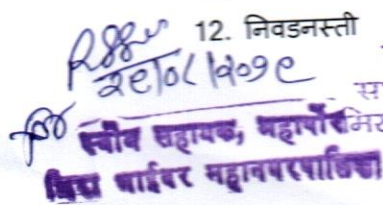 12. निवडनस्ती
२९/०८/२०१९
स्वीय सहायक, महापौर
मिरा भाईंदर महानगरपालिका